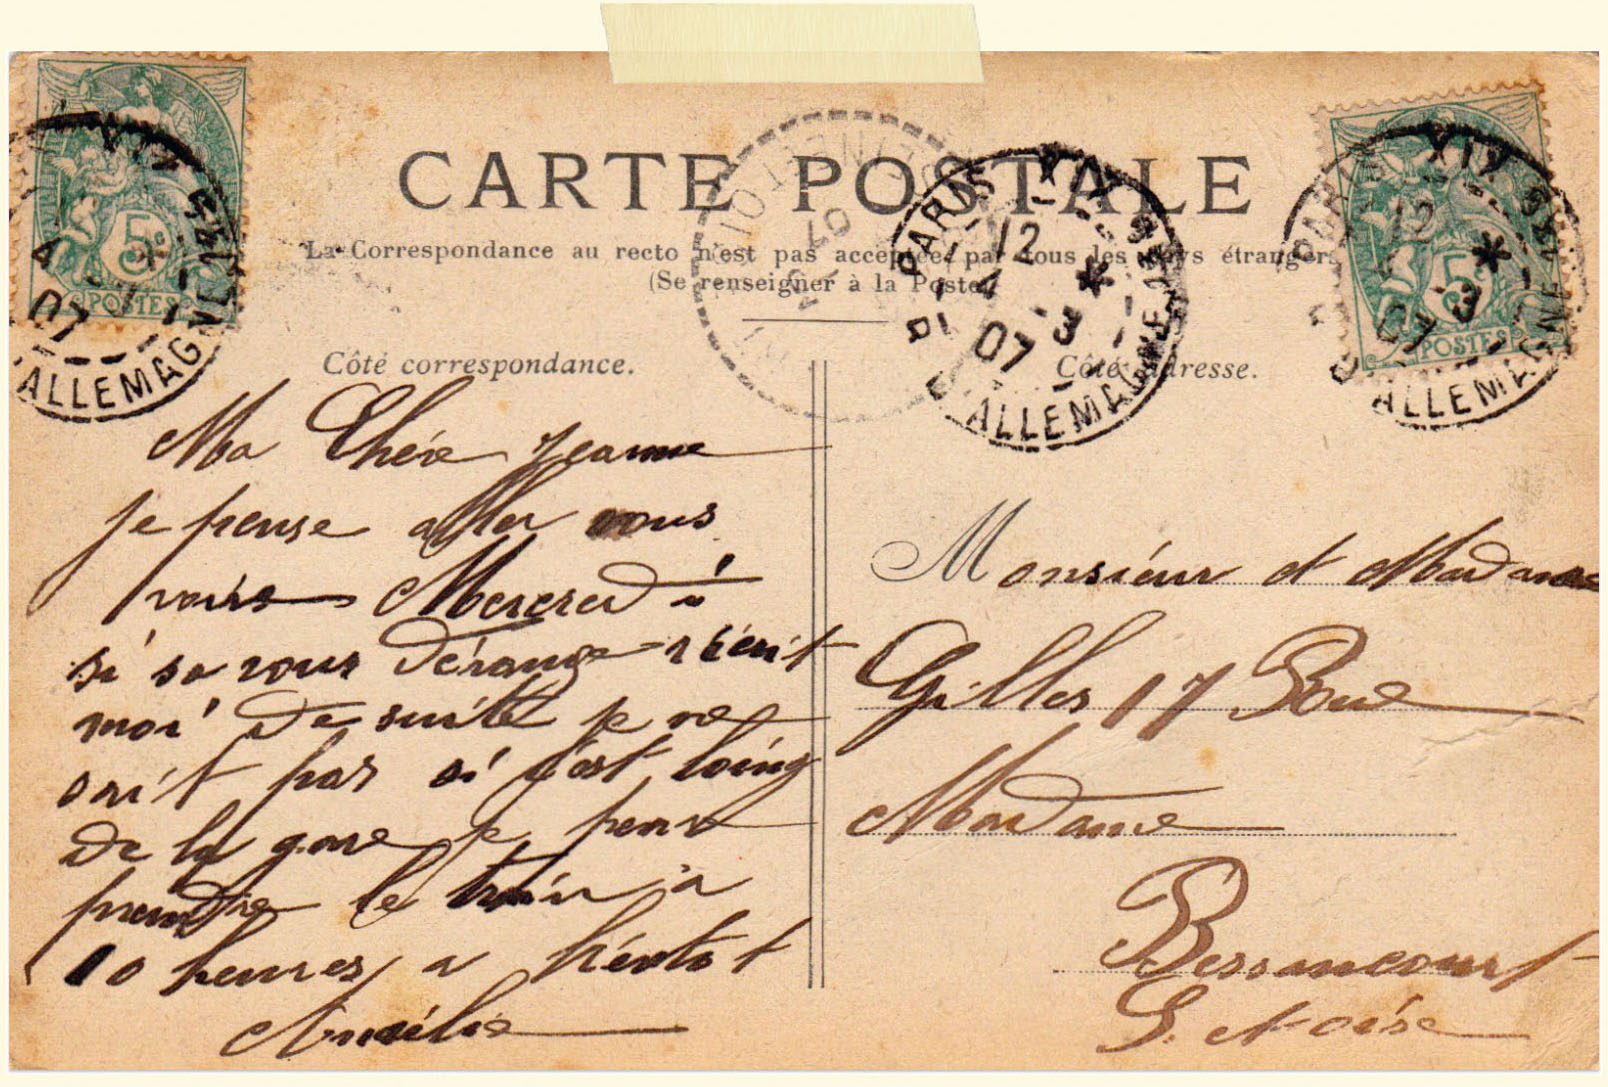 CARTE POSTALE
La Correspondance au recto n'est pas acceptée par tous les pays étrangers
(Se renseigner à la Poste)
Côté correspondance.
Côté adresse.
5c
POSTES
07
ALLEMAGNE
PARIS XIV
12
4 * 3
07
R. D'ALLEMAGNE
PARIS XIV
12 *
3
07
ALLEMAGNE
5c
POSTES
Ma Chére Jeanne
je pense aller vous
voire Mercredi
si sa vous dérange récrit
moi de suite je ne
sait pas si c'est loing
de la gare je pense
prendre le train a
10 heures a bientot
Amélie
Monsieur et Madame
Gilles 17 Roue
Madame
Bessancourt
S. et oise